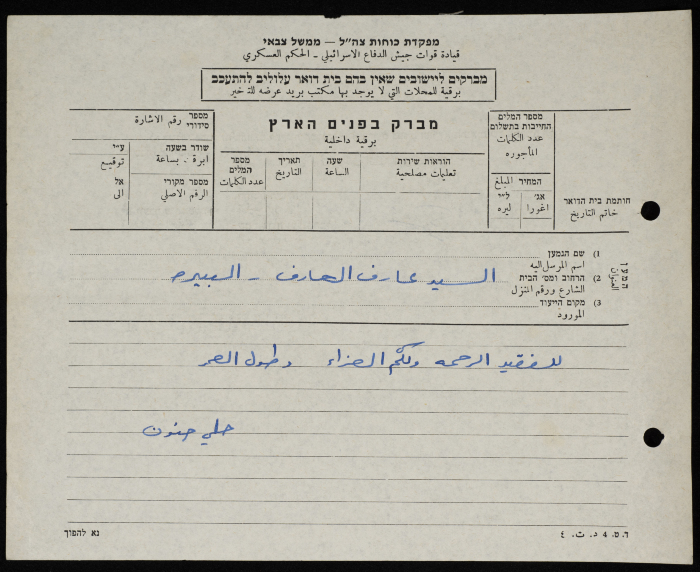 מפקדת כוחות צה"ל — ממשל צבאי
قيادة قوات جيش الدفاع الاسرائيلي ـ الحكم العسكري
מברקים ליישובים שאין בהם בית דואר עלולים להתעכב
برقية للمحلات التي لا يوجد بها مكتب بريد عرضه للتأخير
מברק בפנים הארץ
برقية داخلية
מספר סידורי رقم الاشارة
שודר בשעה ע"י
ابرة ـ بساعة توقيع
מספר מקורי אל
الرقم الاصلي الى
מספר המלים
عدد الكلمات
תאריך
التاريخ
שעה
الساعة
הוראות שירות
تعليمات مصلحية
מספר המלים החייבות בתשלום
عدد الكلمات المأجوره
המחיר المبلغ
אג' ל"י
اغورا ليره
חותמת בית הדואר
خاتم التاريخ
המען
العنوان
1) שם הנמען
اسم المرسل اليه
2) הרחוב ומס' הבית
الشارع ورقم المنزل
السيد عارف العارف ـ البيره
3) מקום הייעוד
المورود
للفقيد الرحمه ولكم العزاء وطول العمر
حنون
נא להפוך
ד. ט. 4 د. ت. ٤